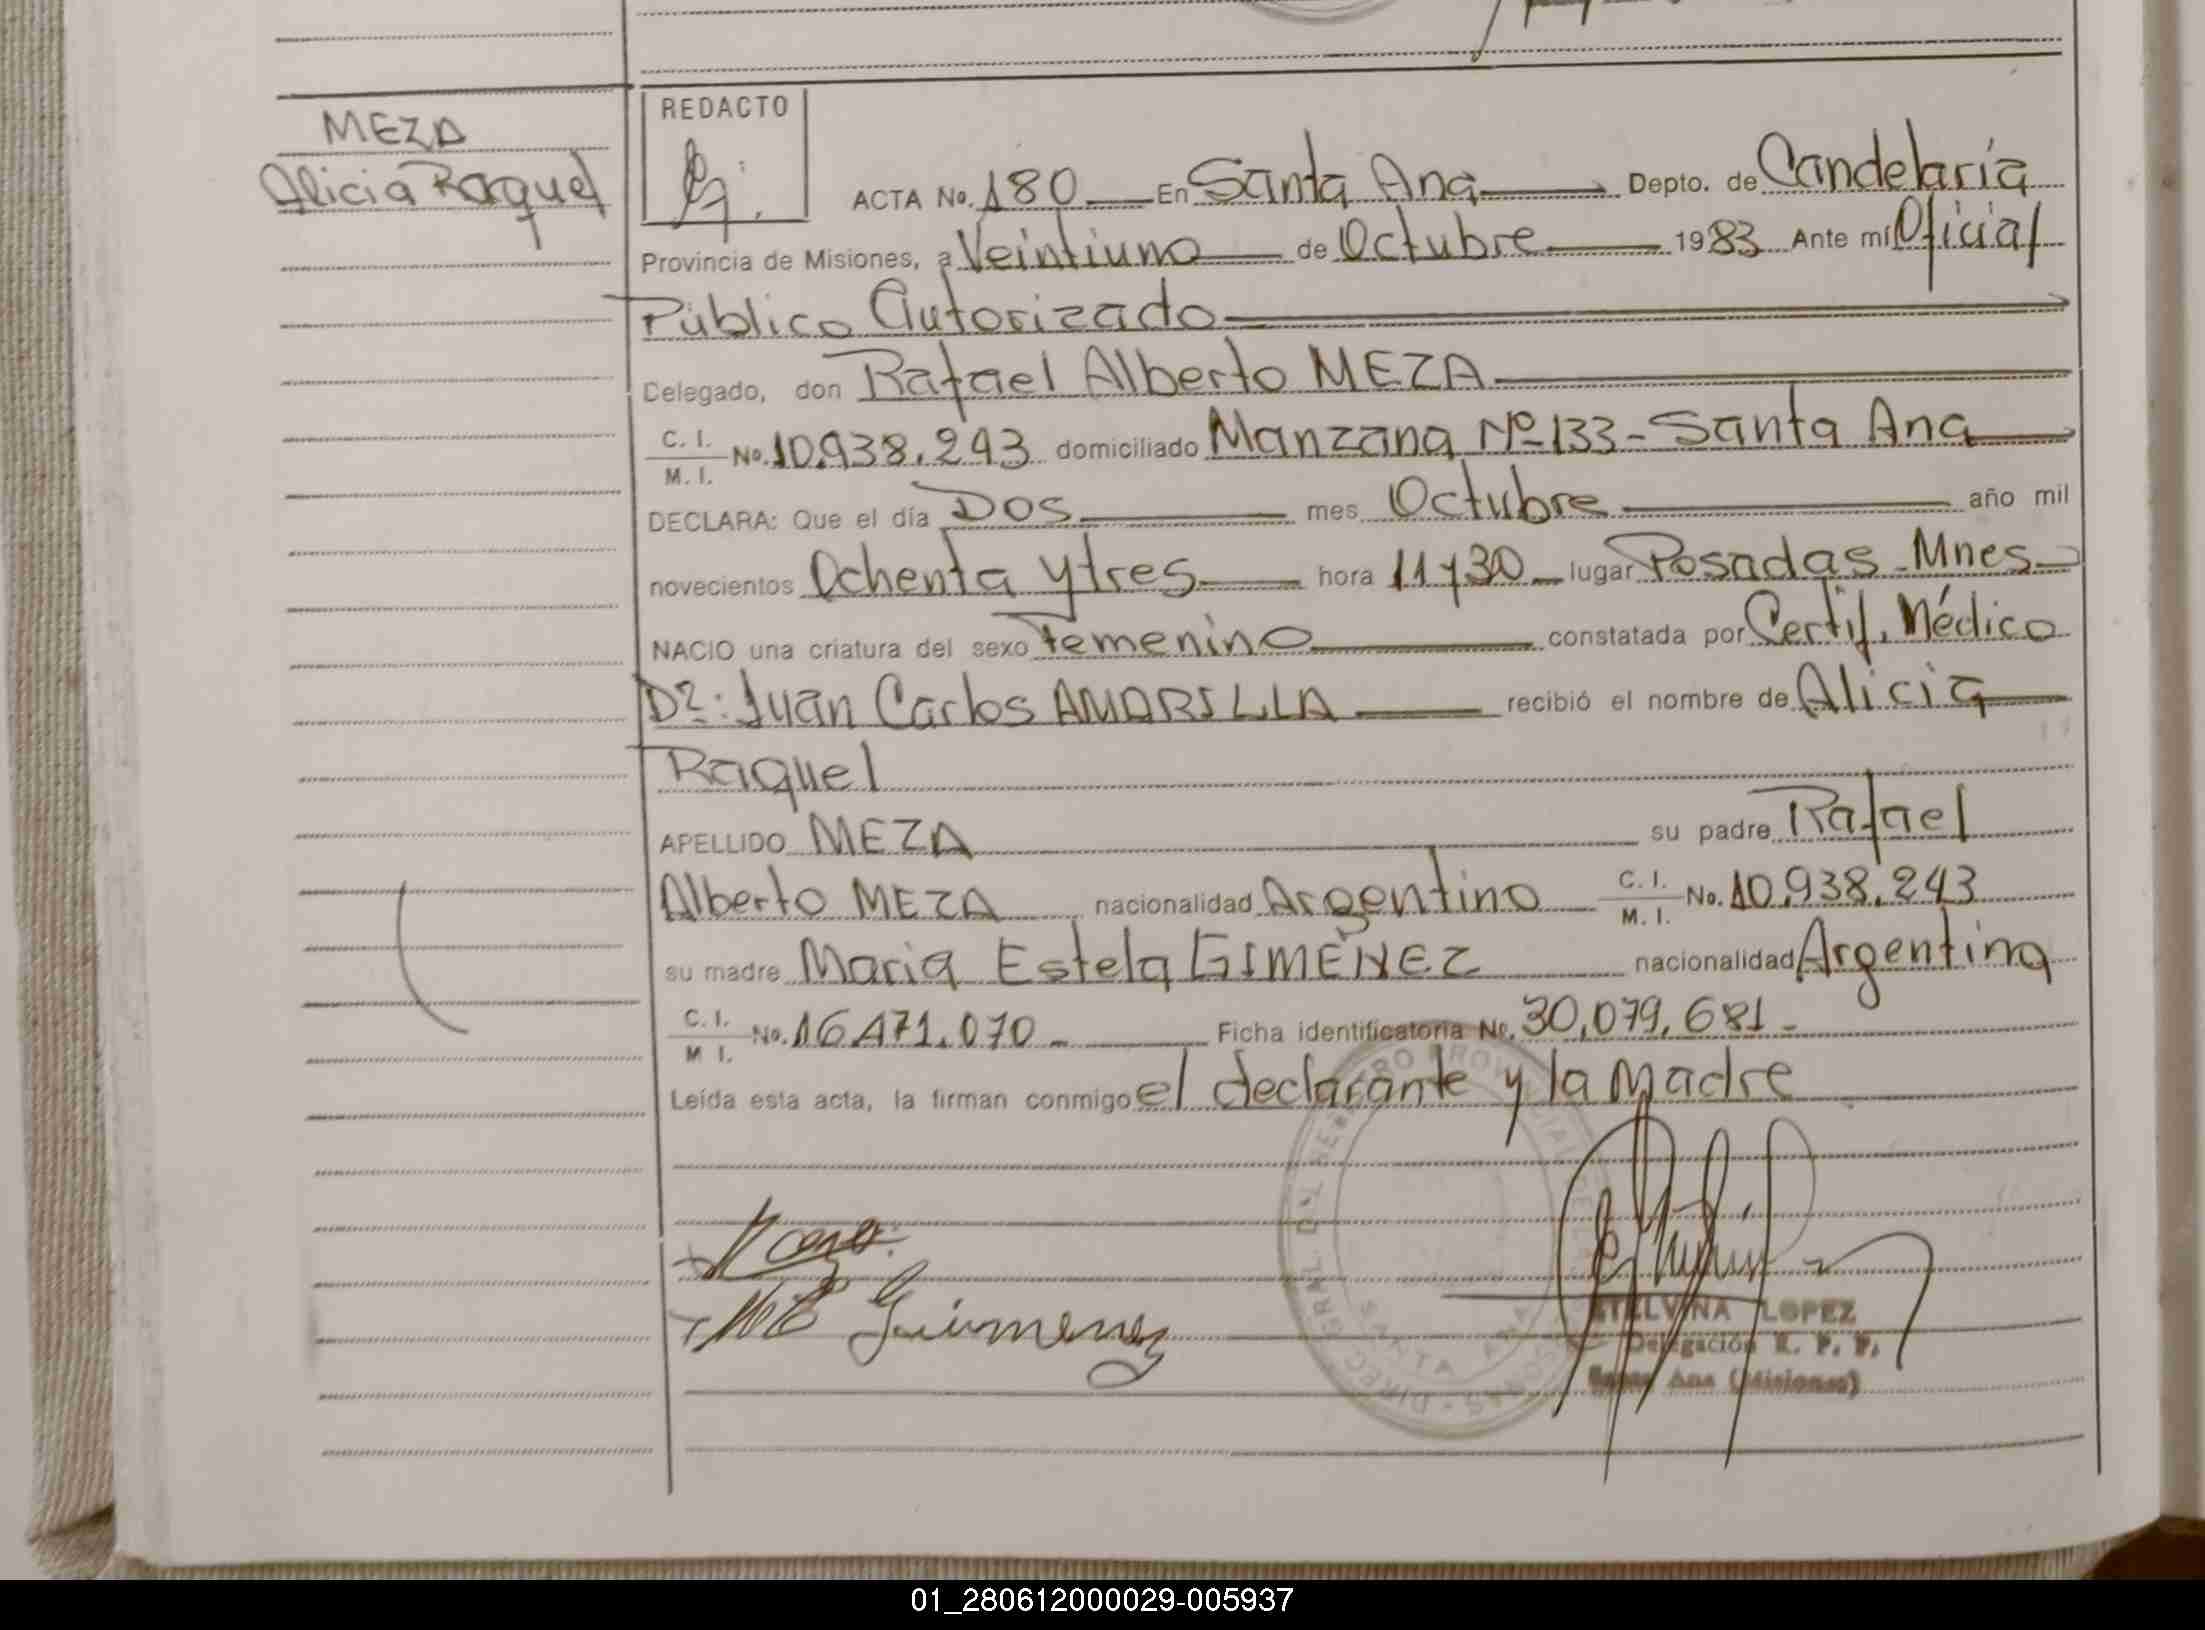 MEZA
Alicia Raquel
REDACTO
ACTA No. 180 En Santa Ana Depto. de Candelaria
Provincia de Misiones, a Veintiuno de Octubre 1983 Ante mí Oficial
Público Autorizado
Celegado, don Rafael Alberto MEZA
C. I.
M. I. No. 10.938.243 domiciliado Manzana Nº 133 - Santa Ana
DECLARA: Que el día Dos mes Octubre año mil
novecientos Ochenta y tres hora 11 y 30 lugar Posadas - Mnes
NACIO una criatura del sexo Femenino constatada por Certif. Médico
Dr: Juan Carlos AMARILLA recibió el nombre de Alicia
Raquel
APELLIDO MEZA su padre Rafael
Alberto MEZA nacionalidad Argentino C. I.
M. I. No. 10.938.243
su madre Maria Estela GIMÉNEZ nacionalidad Argentina
C. I.
M I. No. 16.471.070 - Ficha identificatoria No. 30.079.681 -
Leída esta acta, la firman conmigo el declarante y la Madre
Gimenez
DIREC GRAL DEL REGISTRO PROVINCIAL DE LAS PERSONAS
SANTA ANA
ETELVINA LOPEZ
Delegación R. P. P.
Santa Ana (Misiones)
01_280612000029-005937